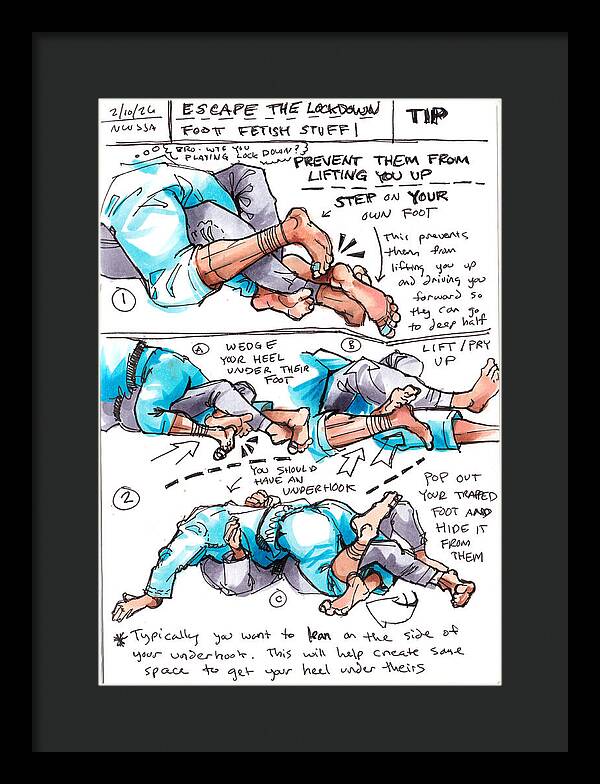 2/10/26
NWSSA
ESCAPE THE LOCKDOWN
FOOT FETISH STUFF!
TIP
BRO. WTF YOU
PLAYING LOCKDOWN?
PREVENT THEM FROM
LIFTING YOU UP
STEP ON YOUR
OWN FOOT
This prevents
them from
lifting you up
and driving you
forward so
they can go
to deep half
1
A
WEDGE
YOUR HEEL
UNDER THEIR
FOOT
B
LIFT/PRY
UP
2
YOU SHOULD
HAVE AN
UNDERHOOK
POP OUT
YOUR TRAPPED
FOOT AND
HIDE IT
FROM
THEM
C
* Typically you want to lean on the side of
your underhook. This will help create some
space to get your heel under theirs